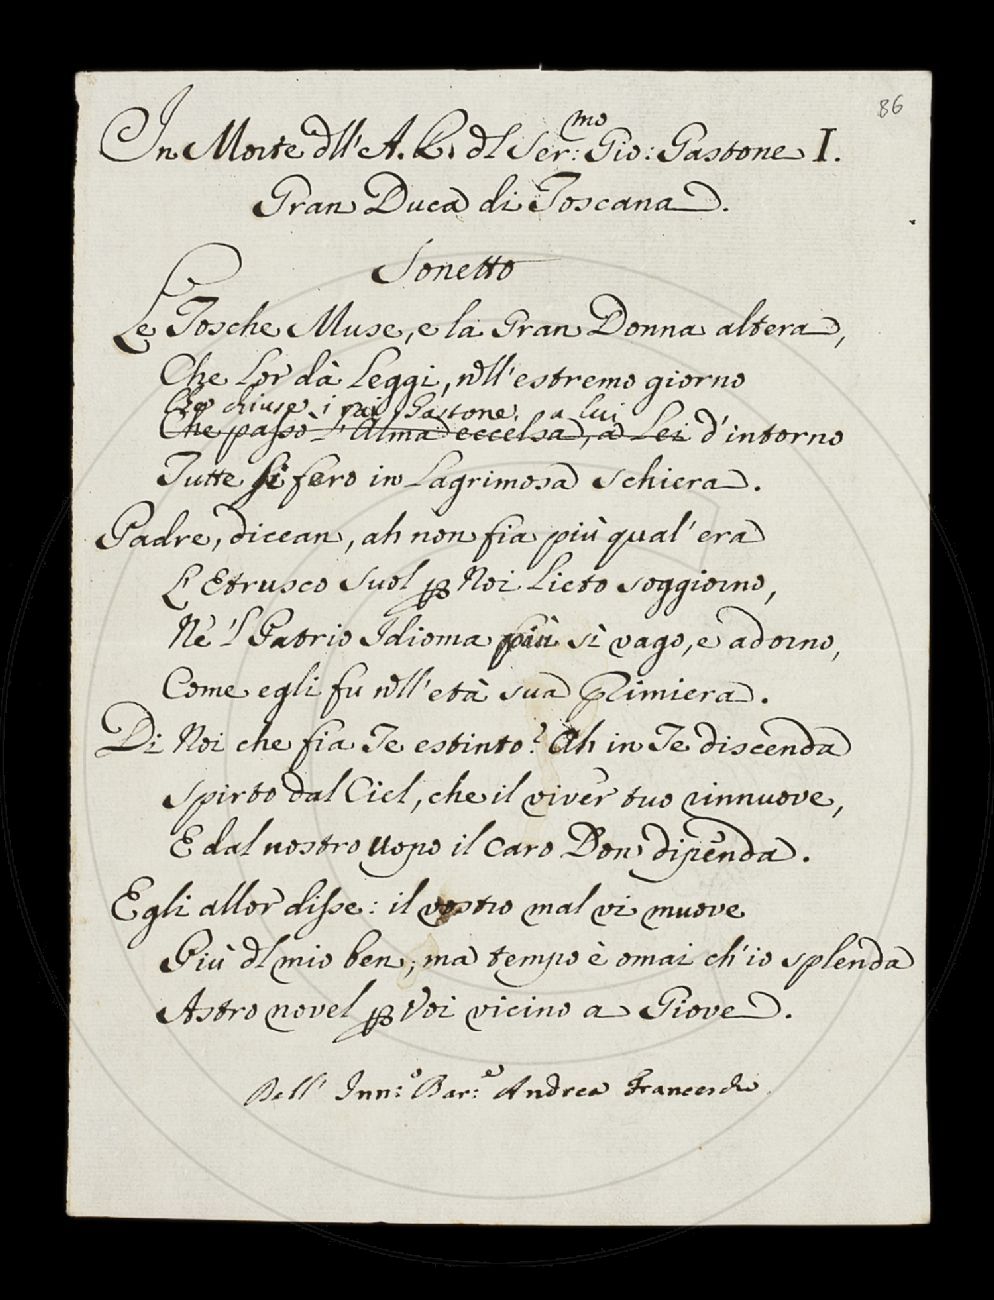 86
In Morte dll' A. R. dl Ser:mo Gio: Gastone I.
Gran Duca di Toscana.
Sonetto
Le Tosche Muse, e la Gran Donna altera,
Che lor dà Leggi, nll' estremo giorno
Che chiuse i rai Gastone, a lui
Che passò l'Alma eccelsa, a Lei d'intorno
Tutte si fero in Lagrimosa schiera.
Padre, dicean, ah non fia più qual' era
L'Etrusco suol p Noi lieto soggiorno,
Nè 'l Patrio Idioma più sì vago, e adorno,
Come egli fu nll' età sua primiera.
Di Noi che fia Te estinto? Ah in Te discenda
Spirto dal Ciel, che il viver tuo rinnuove,
E dal nostro uopo il caro Don dipenda.
Egli allor disse: il vostro mal vi muove
Più dl mio ben; ma tempo è omai ch'io splenda
Astro novel p Voi vicino a Giove.
Dell' Inn:o Bar:e Andrea Franceschi